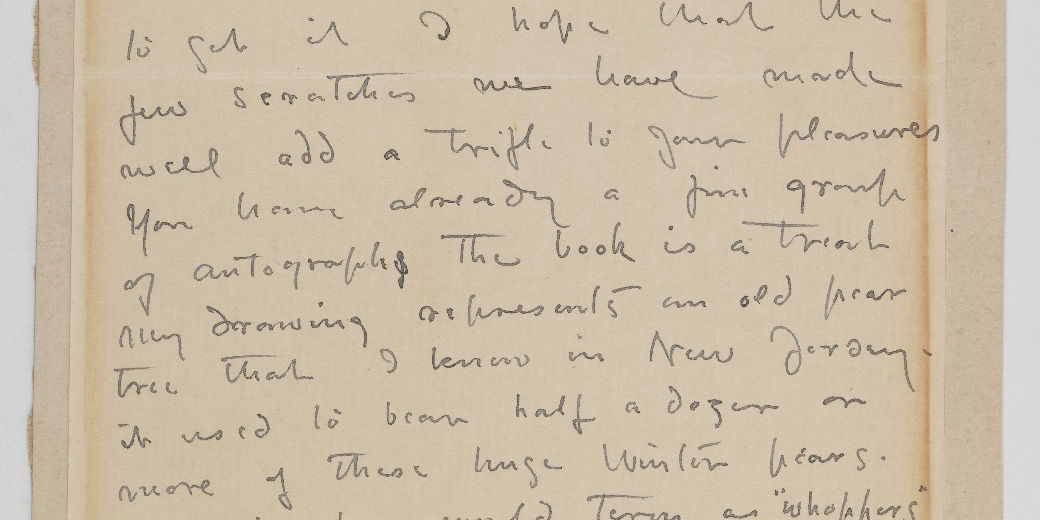 to get it I hope that the
few scratches we have made
will add a trifle to your pleasures
You have already a fine group
of autographs The book is a treat
My drawing represents an old pear
tree that I know in New Jersey.
it used to bear half a dozen or
more of these huge Winter pears.
would term as "whoppers"